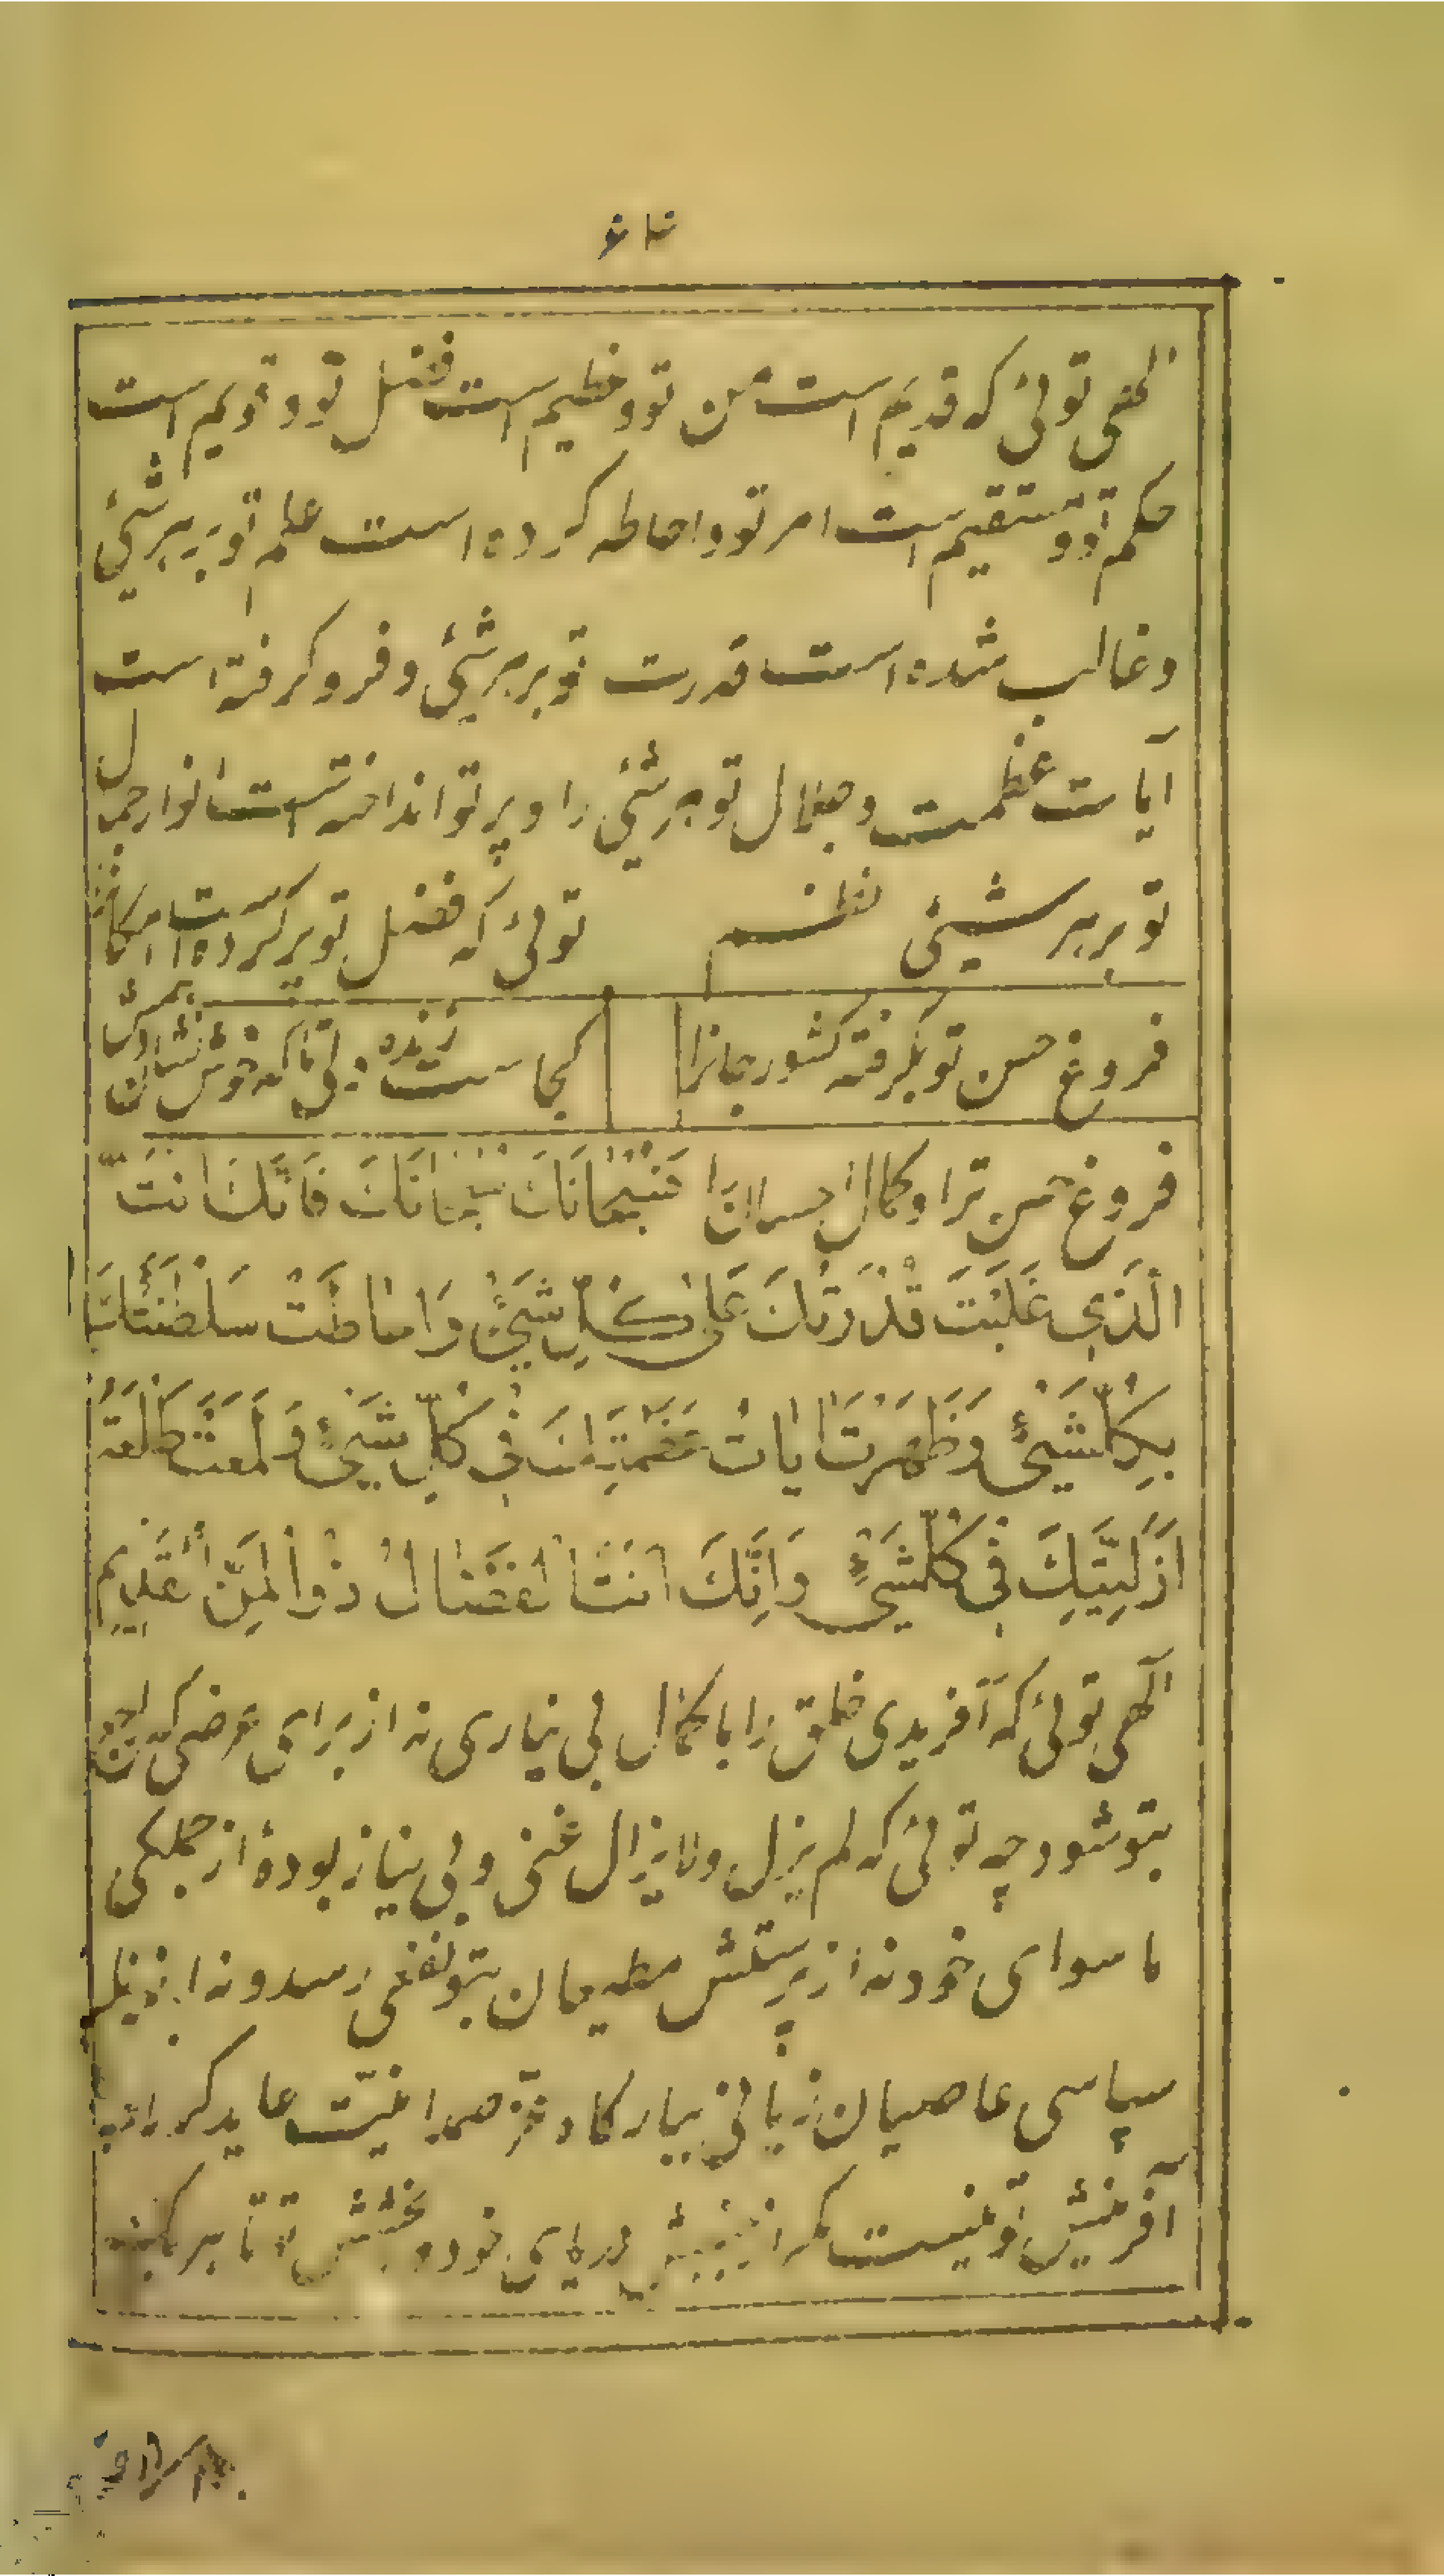 الهی توئی که قدیم است من تو و عظیم است فضل تو و قویم است
حکم تو و مستقیم است امر تو و احاطه کرده است علم تو بر هر شیئی
و غالب شده است قدرت تو بر هر شیئی و فرو گرفته است
آیات عظمت و جلال تو هر شیئی را و پرتو انداخته است انوار جمال
تو بر هر شیئی نظم توئی که فضل تو پر کرده است امکانرا
فروغ حسن تو بگرفته کشور جانرا کجاست زنده دلی تا که خوش
فروغ حسن ترا و کمال احسانرا فَسُبْحانَكَ سُبْحانَكَ فَاِنَّكَ اَنْتَ
الَّذی غَلَبَتْ قُدْرَتُكَ عَلیٰ كُلِّ شَیْئٍ وَ اَحاطَتْ سَلْطَنَتُكَ
بِكُلِّشَیْئٍ وَ ظَهَرَتْ اٰیاتُ عَظَمَتِكَ فی كُلِّ شَیْئٍ وَ لَمَعَتْ طَلْعَةُ
اَزَلِیَّتِكَ فی كُلِّشَیْئٍ وَ اِنَّكَ اَنْتَ الْفَضّالُ ذُوالْمَنِّ الْقَدیم
الهی توئی که آفریدی خلق را با کمال بی نیازی نه از برای غرضی که
بتو شود چه توئی که لم یزل و لا یزال غنی و بی نیاز بودهٔ از جملگی
ما سوای خود نه از پرستش مطیعان بتو نفعی رسد و نه از
سپاسی عاصیان زیانی ببارگاه عز صمدانیت عاید گردد
آفرینش تو نیست مگر از بینش خود و بخشش تو تا بر